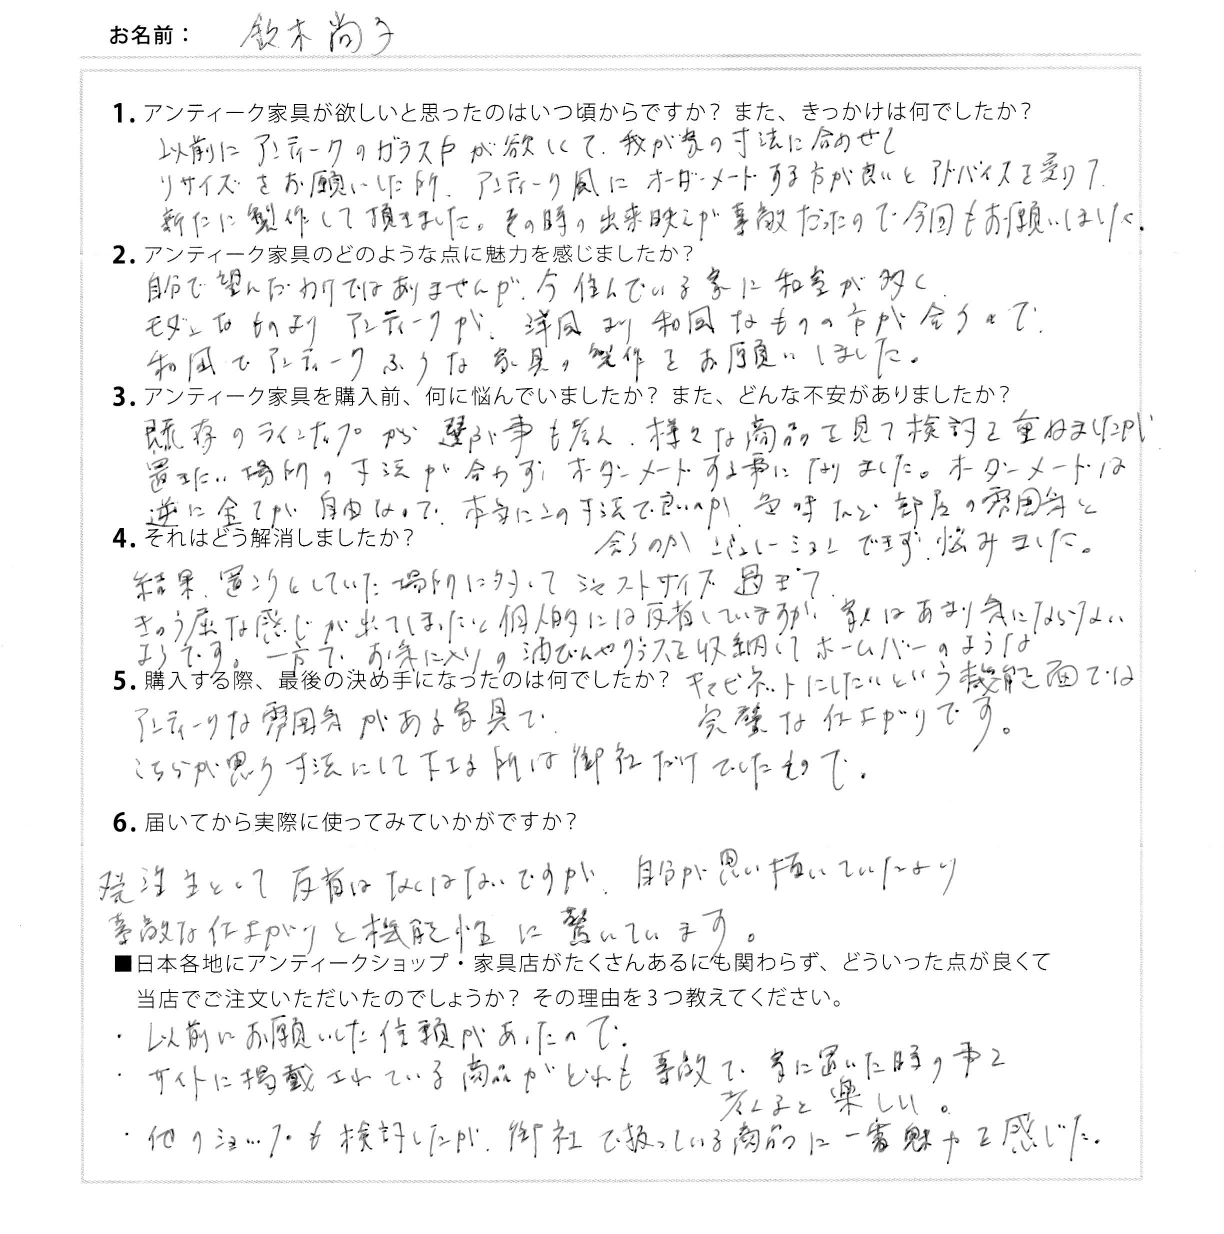 お名前： 鈴木尚子
1. アンティーク家具が欲しいと思ったのはいつ頃からですか？ また、きっかけは何でしたか？
以前に アンティークのガラス戸が欲しくて、我が家の寸法に合わせて
リサイズをお願いした所、アンティーク風にオーダーメードする方が良いとアドバイスを受けて
新たに製作して頂きました。その時の出来映えが素敵だったので今回もお願いしました。
2. アンティーク家具のどのような点に魅力を感じましたか？
自分で望んだわけではありませんが、今住んでいる家に和室が多く、
モダンなものより アンティークが、洋風より和風なものの方が合うので、
和風でアンティークふうな家具の製作をお願いしました。
3. アンティーク家具を購入前、何に悩んでいましたか？ また、どんな不安がありましたか？
既存のラインナップから選ぶ事も考え、様々な商品を見て検討を重ねましたが
置きたい場所の寸法が合わず、オーダーメードする事になりました。オーダーメードは
逆に全てが自由なので、本当にこの寸法で良いのか、色味など部屋の雰囲気と
合うのかシュミレーションできず、悩みました。
4. それはどう解消しましたか？
結果、置こうとしていた場所に対してジャストサイズ過ぎて、
きゅう屈な感じが出てしまったと個人的には反省していますが、家人はあまり気にならない
ようです。一方で、お気に入りの酒びんやグラスを収納してホームバーのような
キャビネットにしたいという機能面では
完璧な仕上がりです。
5. 購入する際、最後の決め手になったのは何でしたか？
アンティークな雰囲気がある家具で、
こちらが思う寸法にして下さる所は御社だけでしたもので。
6. 届いてから実際に使ってみていかがですか？
発注主として反省はなくはないですが、自分が思い描いていたより
素敵な仕上がりと機能性に驚いています。
■日本各地にアンティークショップ・家具店がたくさんあるにも関わらず、どういった点が良くて
当店でご注文いただいたのでしょうか？ その理由を３つ教えてください。
・以前にお願いした信頼があったので。
・サイトに掲載されている商品がどれも素敵で、家に置いた時の事を
考えると楽しい。
・他のショップも検討したが、御社で扱っている商品に一番魅力を感じた。